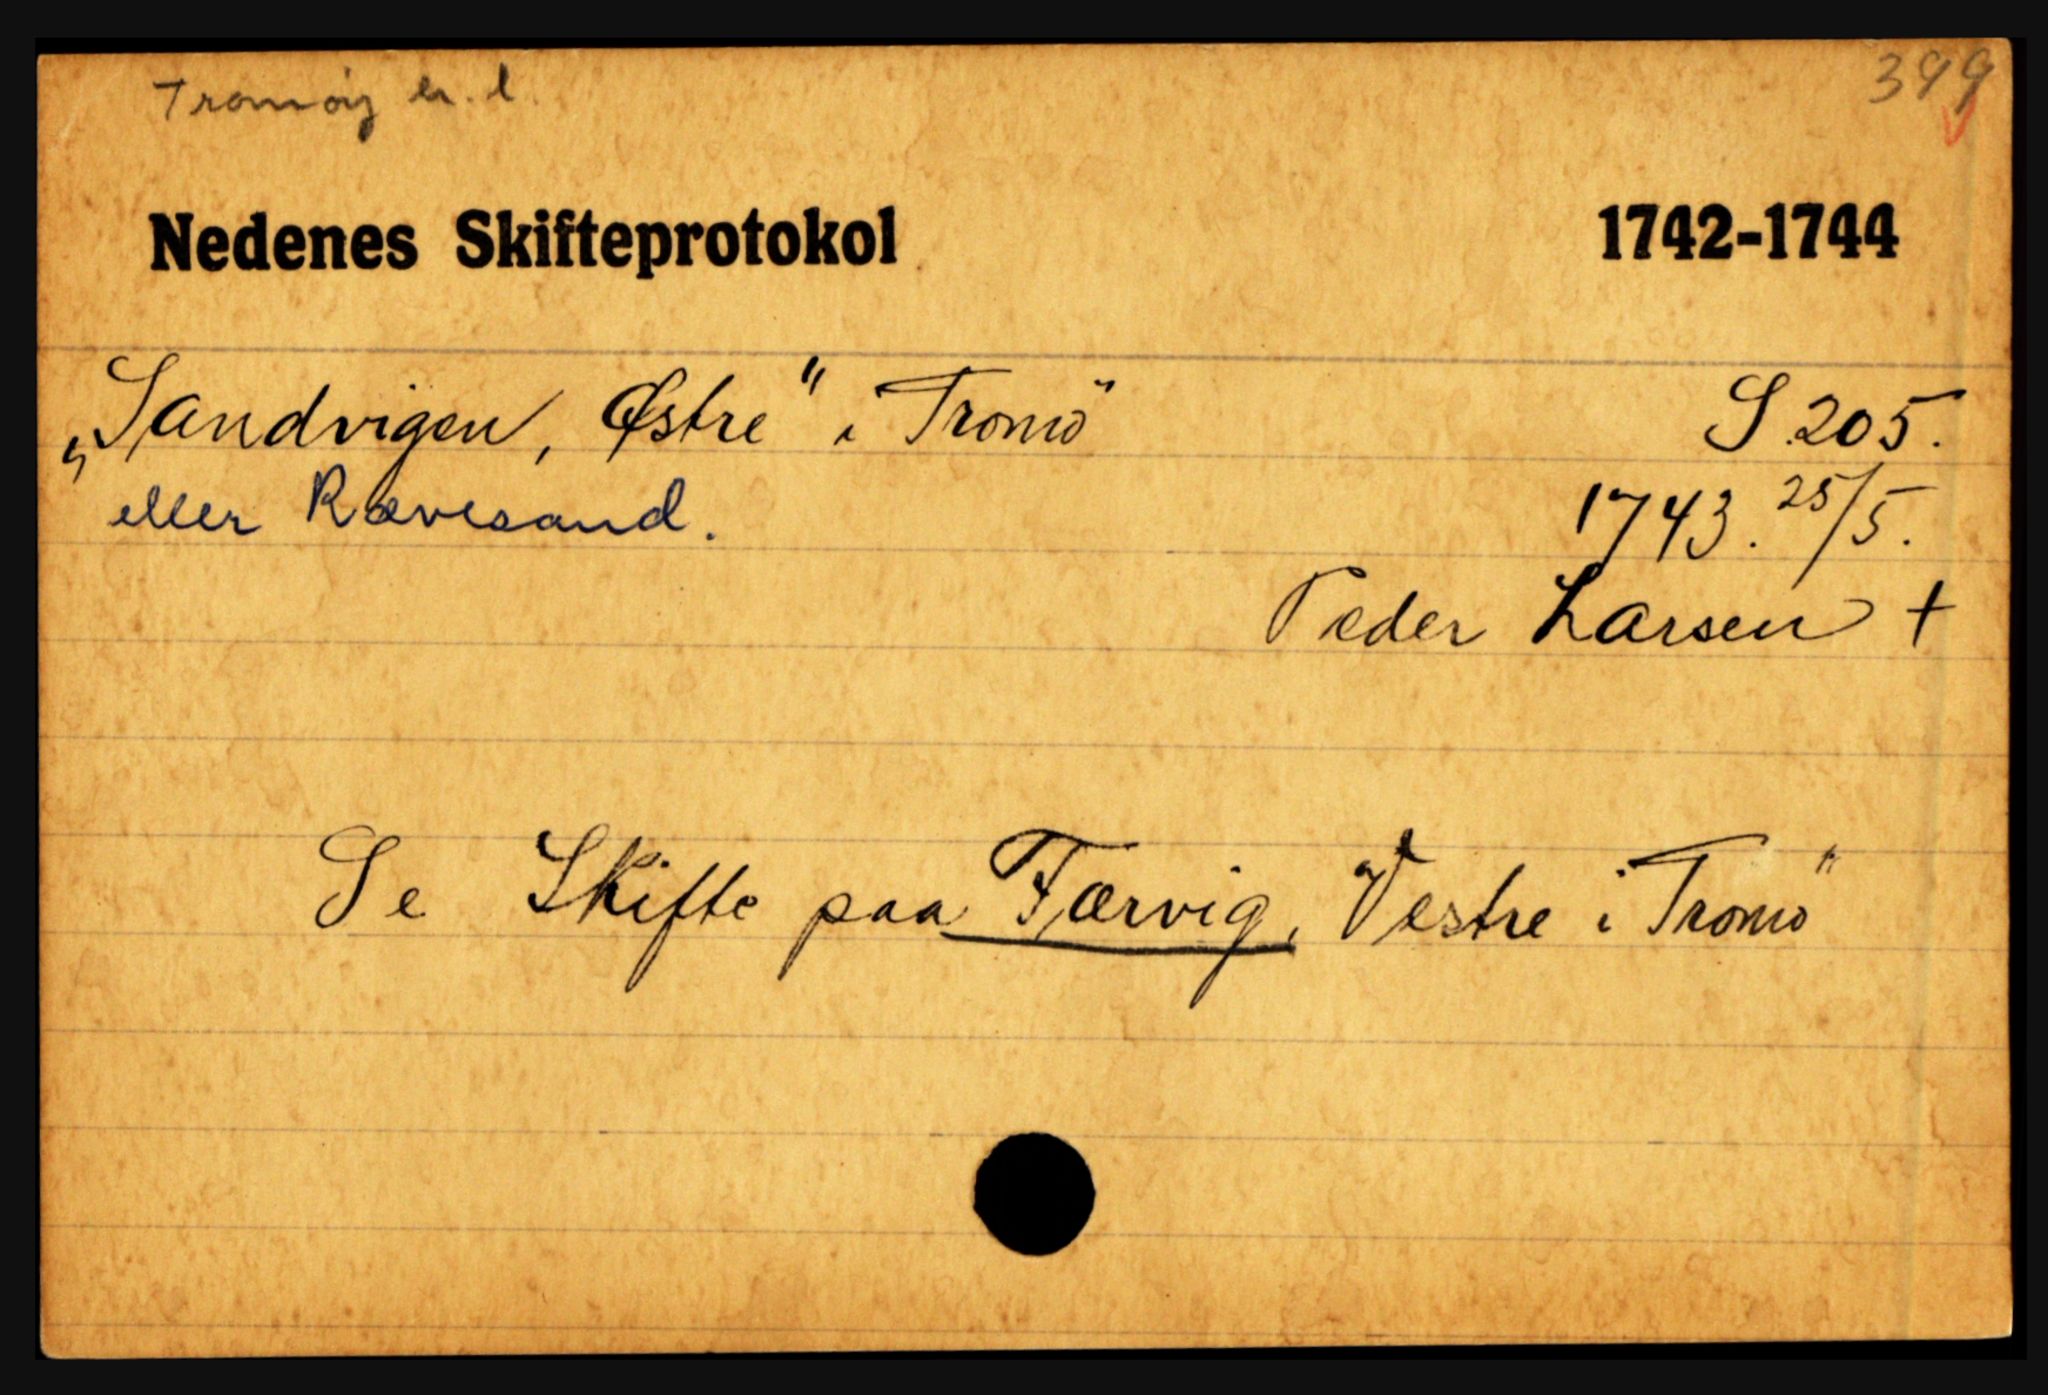 Tromøy l.
399
Nedenes Skifteprotokol 1742-1744
„Sandvigen, Østre" i Tromö S. 205.
eller Rævesand. 1743. 25/5.
Peder Larsen +
Se Skifte paa Færvig, Vestre i Tromö